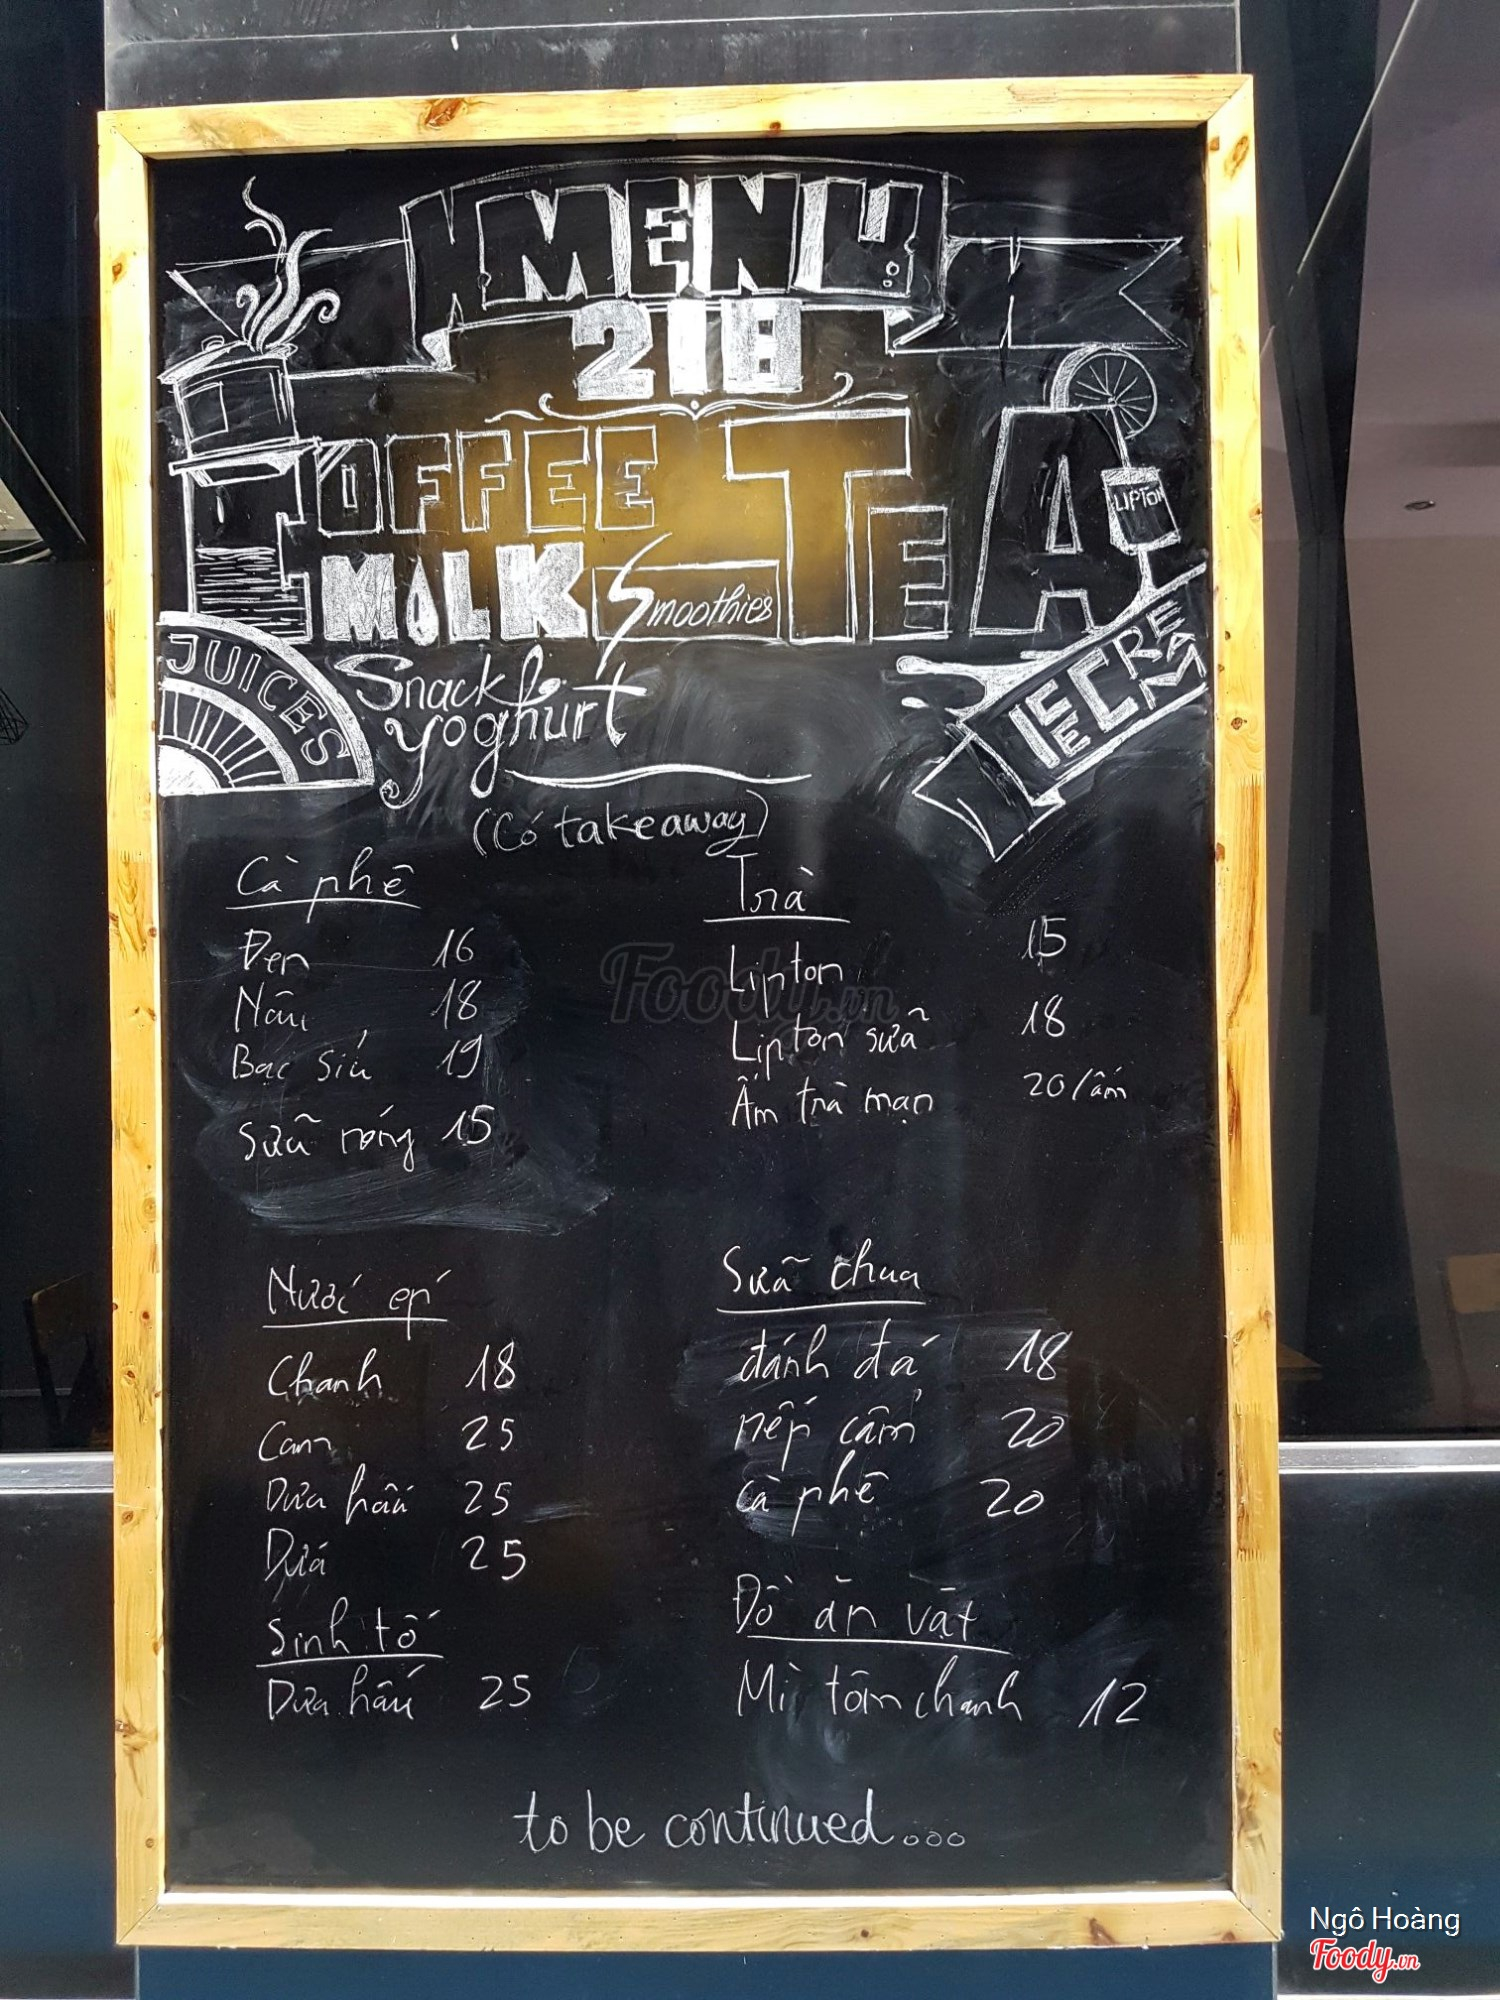 MENU
218
COFFEE TEA
LIPTON
MILK Smoothies
JUICES
Snack
yoghurt
ICE CREAM
(Có takeaway)
Cà phê
Đen 16
Nâu 18
Bạc siủ 19
Sữa nóng 15
Trà
Lipton 15
Lipton sữa 18
Ấm trà mạn 20/ấm
Nước ép
Chanh 18
Cam 25
Dưa hấu 25
Dứa 25
Sinh tố
Dưa hấu 25
Sữa chua
đánh đá 18
nếp cẩm 20
cà phê 20
Đồ ăn vặt
Mì tôm chanh 12
to be continued...
Foody.vn
Ngô Hoàng
Foody.vn